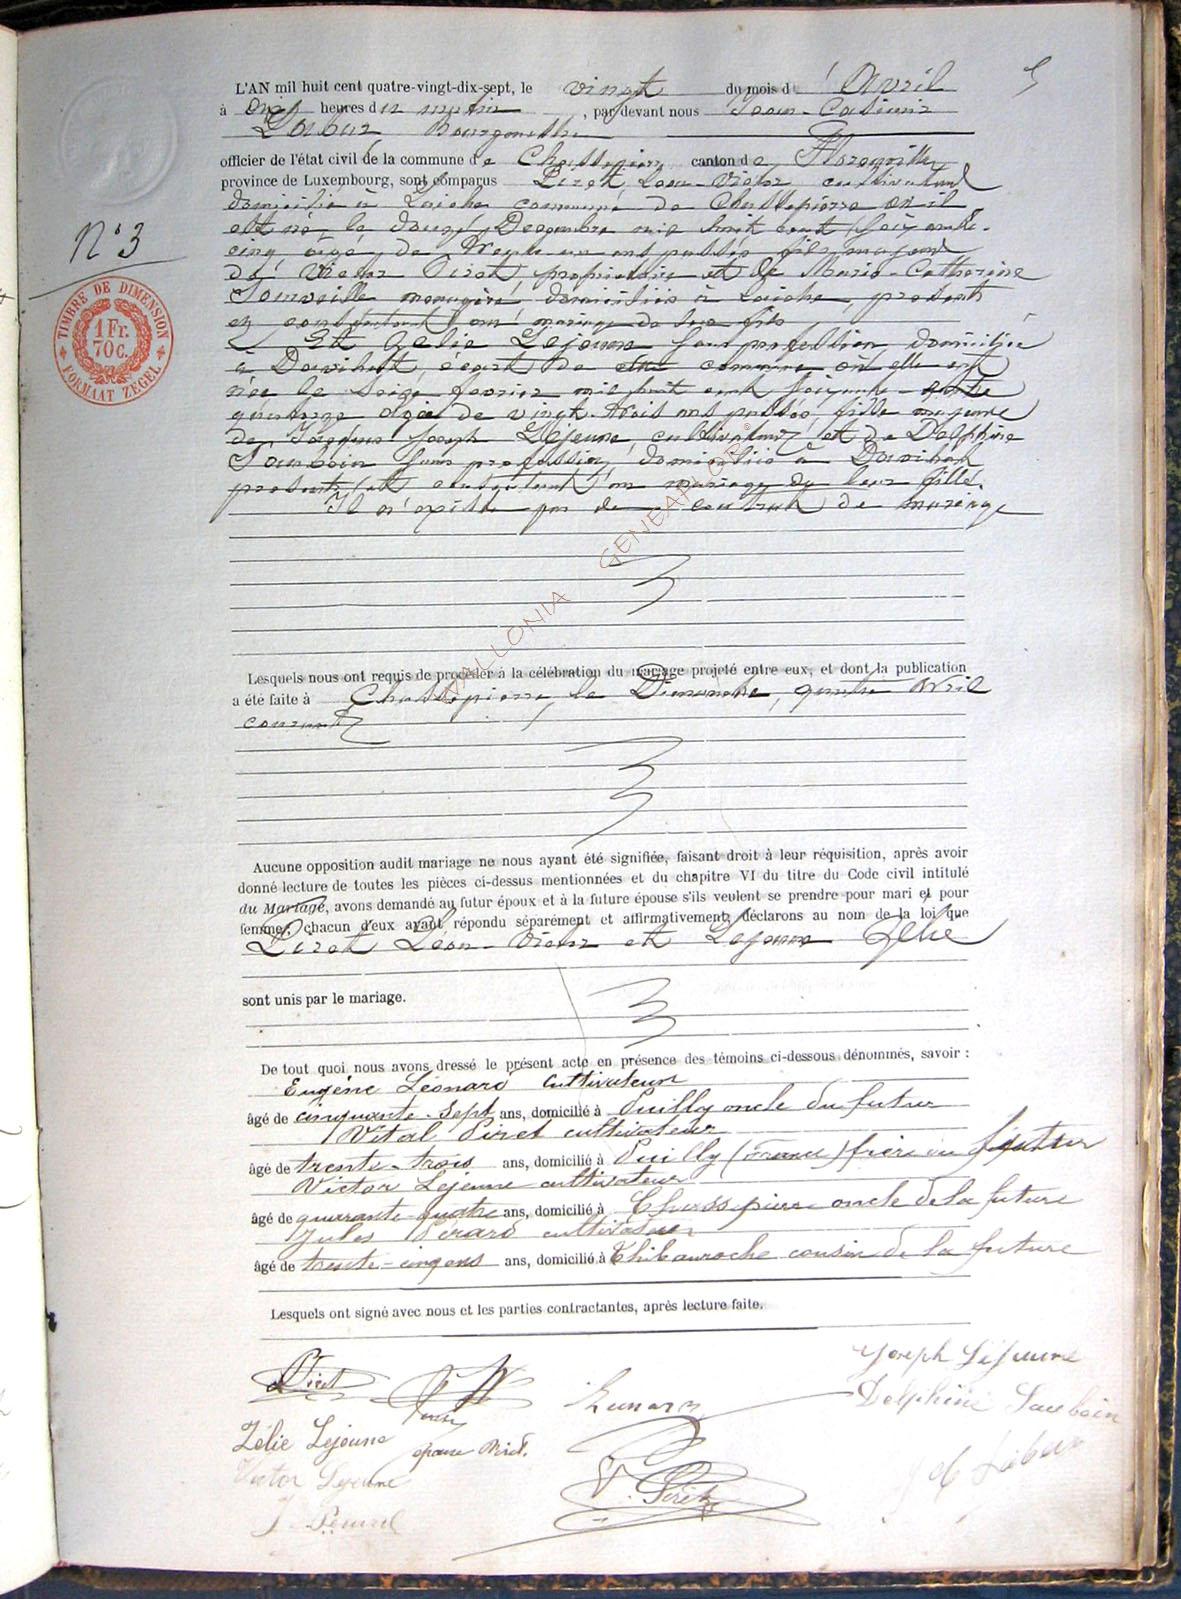 5
L'AN mil huit cent quatre-vingt-dix-sept, le vingt du mois d'Avril
à dix heures du matin, par devant nous Jean-Casimir
Lebar Bourgmestre
officier de l'état civil de la commune de Chassepierre canton de Florenville
province de Luxembourg, sont comparus Piret Léon-Victor cultivateur
domicilié à Laiche commune de Chassepierre où il
est né le douze Décembre mil huit cent soixante-
cinq âgé de trente un ans passés fils majeur
de Victor Piret propriétaire et de Marie-Catherine
ménagère domiciliés à Laiche, présents
et consentant au mariage de leur fils
Et Zélie Lejeune sans profession domiciliée
à Davihat, écart de cette commune où elle est
née le seize février mil huit cent soixante-
quatorze âgée de vingt-trois ans passés, fille majeure
de Jacques Joseph Lejeune, cultivateur et de Delphine
Sauboin sans profession, domiciliés à Davihat
présents et consentant au mariage de leur fille.
Il n'existe pas de contrat de mariage
N° 3
TIMBRE DE DIMENSION
1 Fr. 70 c.
FORMAAT ZEGEL
WALLONIA GENEAFLOR
Lesquels nous ont requis de procéder à la célébration du mariage projeté entre eux, et dont la publication
a été faite à Chassepierre, le Dimanche, quatre Avril
courant
Aucune opposition audit mariage ne nous ayant été signifiée, faisant droit à leur réquisition, après avoir
donné lecture de toutes les pièces ci-dessus mentionnées et du chapitre VI du titre du Code civil intitulé
du Mariage, avons demandé au futur époux et à la future épouse s'ils veulent se prendre pour mari et pour
femme; chacun d'eux ayant répondu séparément et affirmativement, déclarons au nom de la loi que
Piret Léon-Victor et Lejeune Zélie
sont unis par le mariage.
De tout quoi nous avons dressé le présent acte en présence des témoins ci-dessous dénommés, savoir :
Eugène Léonard cultivateur
âgé de cinquante-sept ans, domicilié à Puilly oncle du futur
Vital Piret cultivateur
âgé de trente-trois ans, domicilié à Puilly (France) frère du futur
Victor Lejeune cultivateur
âgé de quarante-quatre ans, domicilié à Chassepierre oncle de la future
Jules Pérard cultivateur
âgé de trente-cinq ans ans, domicilié à Thibauroche cousin de la future
Lesquels ont signé avec nous et les parties contractantes, après lecture faite.
Piret
Joseph Lejeune
Delphine Sauboin
Zélie Lejeune
épouse Piret.
Victor Lejeune
V. Piret